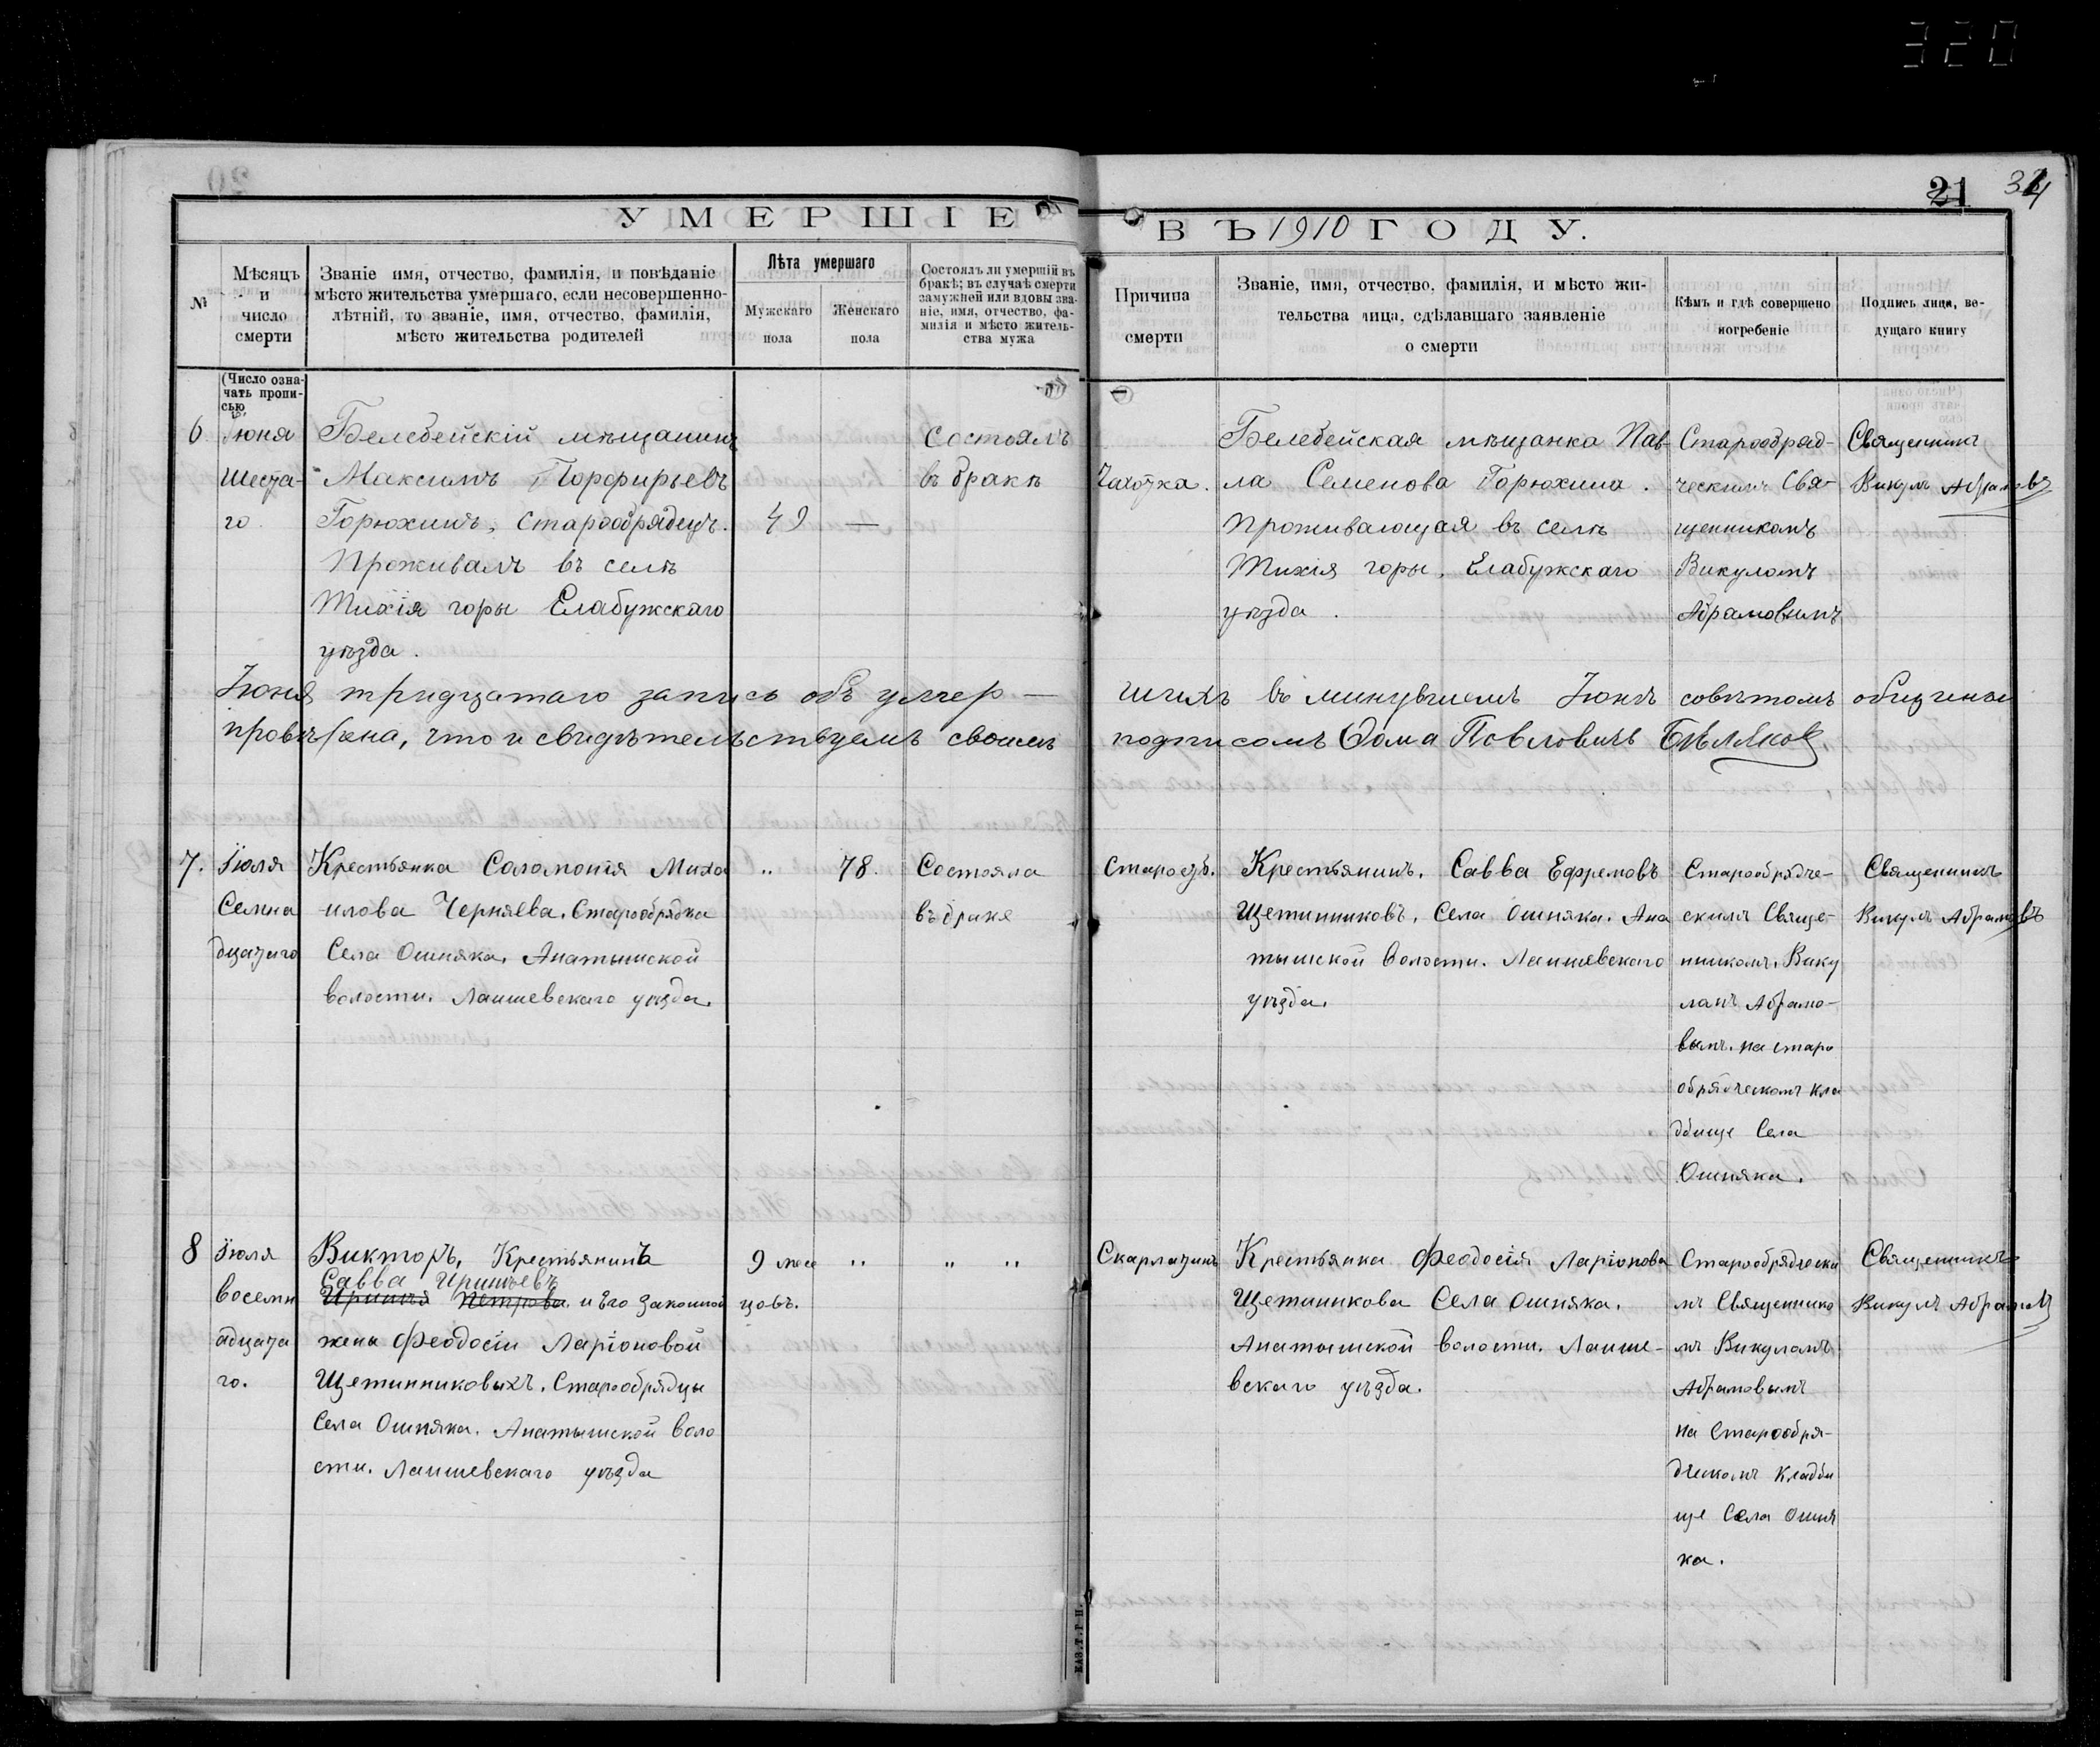 320
21 314
УМЕРШІЕ ВЪ 1910 ГОДУ.
№
Мѣсяцъ
и
число
смерти
Званіе имя, отчество, фамилія, и повѣданіе
мѣсто жительства умершаго, если несовершенно-
лѣтній, то званіе, имя, отчество, фамилія,
мѣсто жительства родителей
Лѣта умершаго
Мужскаго
пола
Женскаго
пола
Состоялъ ли умершій въ
бракѣ; въ случаѣ смерти
замужней или вдовы зва-
ніе, имя, отчество, фа-
милія и мѣсто житель-
ства мужа
Причина
смерти
Званіе, имя, отчество, фамилія, и мѣсто жи-
тельства лица, сдѣлавшаго заявленіе
о смерти
Кѣмъ и гдѣ совершено
погребеніе
Подпись лица, ве-
дущаго книгу
(Число озна-
чать пропи-
сью)
6
Іюня
Шеста-
го
Белебейскій мѣщанинъ
Максимъ Порфирьевъ
Горюхинъ, Старообрядецъ.
Проживалъ въ селѣ
Тихія горы Елабужскаго
уѣзда.
49 —
Состоялъ
въ бракѣ
Чахотка.
Белебейская мѣщанка Пав-
ла Семенова Горюхина.
Проживающая въ селѣ
Тихія горы, Елабужскаго
уѣзда.
Старообряд-
ческимъ Свя-
щенникомъ
Викуломъ
Абрамовымъ
Священникъ
Викулъ Абрамовъ
Іюня тридцатаго запись объ умер- шихъ въ минувшемъ Іюнѣ совѣтомъ общины
провѣрена, что и свидѣтельствуемъ своимъ подписомъ Фома Повловичъ Бѣляков
7.
Іюля
Семна
дцатаго
Крестьянка Соломонія Миха
илова Черняева. Старообрядка
Села Ошняка, Анатышской
волости. Лаишевскаго уѣзда.
" 78.
Состояла
въ бракѣ
Старость.
Крестьянинъ. Савва Ефремовъ
Щетинниковъ. Села Ошняка. Ана
тышской волости. Лаишевскаго
уѣзда.
Старообрядче-
скимъ Свяще-
нникомъ. Вику
ломъ Абрамо-
вымъ. на старо
обрядческомъ кла
дбище Села
Ошняка.
Священникъ
Викулъ Абрамовъ
8
Іюля
восемн
адцата
го.
Викторъ, Крестьянинъ
Савва Иринѣевъ
Иринѣя Петрова и Его законной
жены Феодосіи Ларіоновой
Щетинниковыхъ. Старообрядцы
Села Ошняка. Анатышской воло
сти. Лаишевскаго уѣзда
9 меся
цовъ.
" " "
Скарлатинъ
Крестьянка Феодосія Ларіонова
Щетинникова Села Ошняка.
Анатышской волости. Лаише-
вскаго уѣзда.
Старообрядчески
мъ Священнико
мъ Викуломъ
Абрамовымъ
на Старообря-
дческомъ Кладби
ще Села Ошня
ка.
Священникъ
Викулъ Абрамовъ
КАЗ.Т.Г.П.